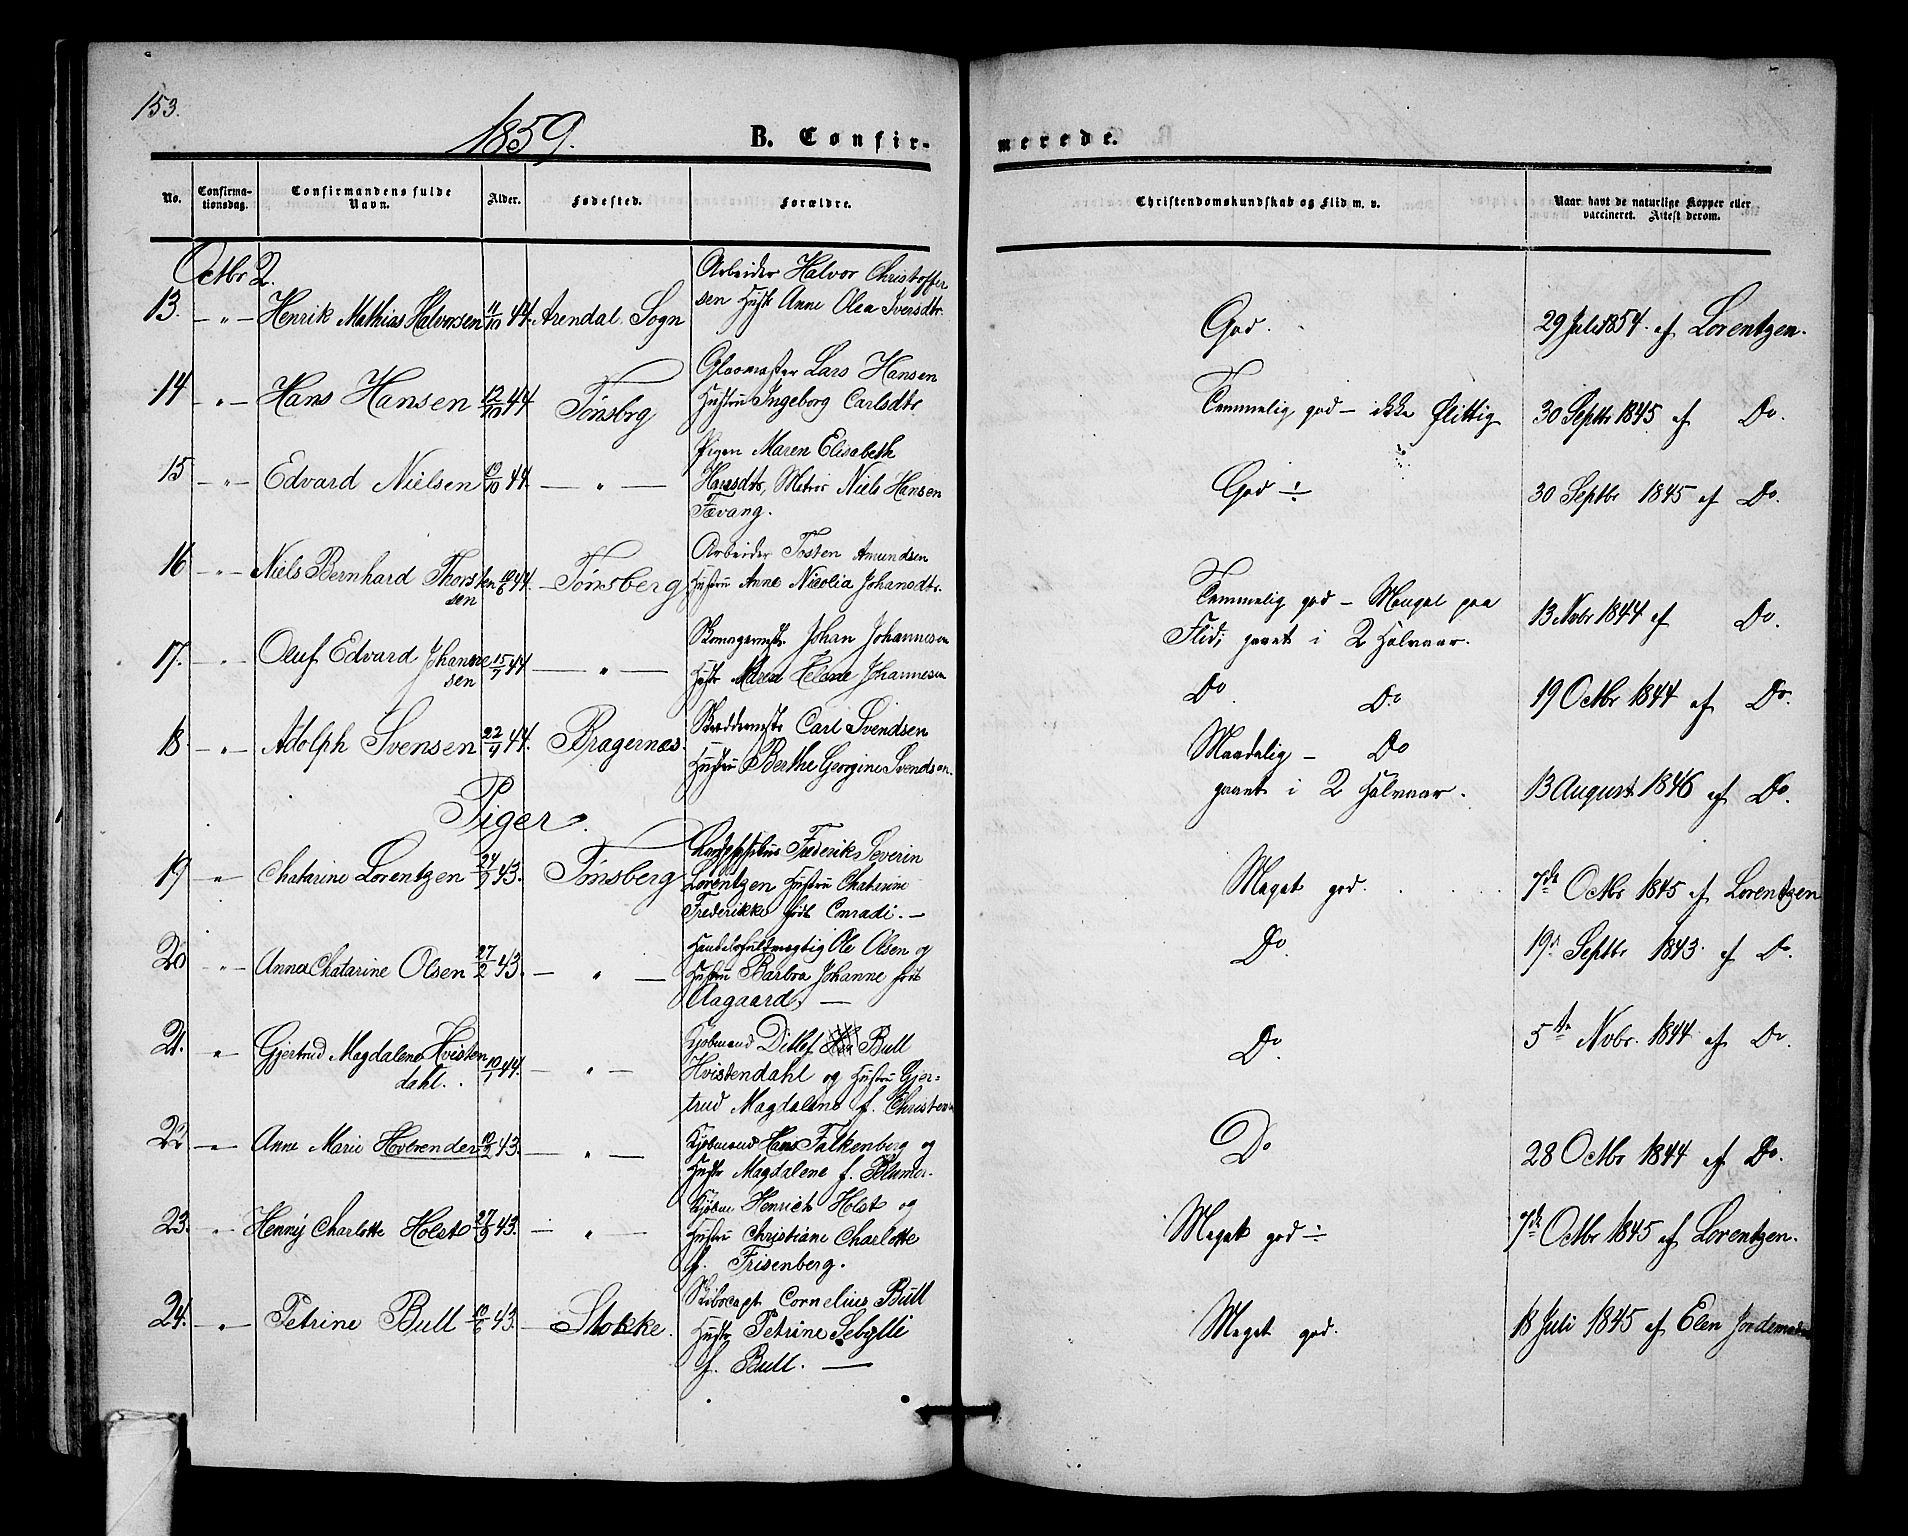 153.
1859.
B. Confir-
merede.
No.
Confirma-
tionsdag.
Confirmandens fulde
Navn.
Alder.
Fødested.
Forældre.
Christendomskundskab og Flid m. v.
Naar havt de naturlige Kopper eller
vaccineret. Attest derom.
Octbr 2.
Arbeider Halvor Christoffer
13. — „ — Henrik Mathias Halvorsen 11/10 44. Arendal Sogn
sen Hustr Anne Olea Iversdtr.
God.
29 Juli 1854. af Lorentzen.
Lars Hansen
14 — „ — Hans Hansen 12/10 44 Tønsbrg
Hustru Ingeborg Carlsdtr
Temmelig god — ikke flittig
30 Septbr 1845 af Do.
Pigen Maren Elisabeth
15 — „ — Edvard Nielsen 19/10 44. — „ —
Hansdtr, Matros Niels Hansen
Fævang.
God ÷
30 Septbr 1845 af Do.
Arbeider Tosten Amundsen
16 — „ — Niels Bernhard Thorsten
sen
44. — Tønsberg
Hustru Anne Nicolia Johansdtr.
Temmelig god — Mangel paa
Flid; gaaet i 2 Halvaar.
13 Novbr 1844 af Do.
Skomagermstr Johan Johannesen
17. — „ — Oluf Edvard Johanne
sen
15/7 44 — „ —
Hustr Maren Helene Johannesen
Do. Do.
19 Octbr 1844 af Do.
Skreddermstr Carl Svendsen
18. — „ — Adolph Svensen 22/9 44. Bragernæs.
Hustru Berthe Georgine Svendsen.
Maadelig — Do
gaaet i 2 Halvaar.
13 August 1846 af Do.
Piger.
Frederik Severin
19 „ — Chatarine Lorentzen 24/9 43. Tønsberg
Lorentzen Hustru Chatarine
Frederikke født Conradi. —
Meget god.
7de Octbr 1845 af Lorentzen
Handelsfuldmægtig Ole Olsen og
20 — „ — Anna Chatarine Olsen 27/2 43. — „ —
Hustru Barbra Johanne født
Aagaard. —
Do.
19. Septbr 1843. af Do.
Kjøbmand Ditlef Bull
21. „ — Gjertrud Magdalene Hvisten
dahl.
10/1 44. — „ —
Hvistendahl og Hustru Gjer-
trud Magdalene f. Christen
Do.
5te Novbr. 1844. af Do.
Kjøbmand Hans Falkenberg og
22 — „ — Anne Marie 43. — „ —
Hustr Magdalene f. Blumer.
Do
28 Octbr 1844 af Do.
Kjøbm Henrich Holst og
23. „ — Henny Charlotte Holst 43. — „ —
Hustru Christiane Charlotte
f. Frisenberg.
Meget god ÷
7de Octbr 1845 af Lorentzen.
Skibscapt Cornelius Bull
24. — „ — Petrine Bull 43. — Stokke.
Hustr Petrine Sebylli
f. Bull. —
Meget god.
18 Juli 1845 af Elen Jordemoder